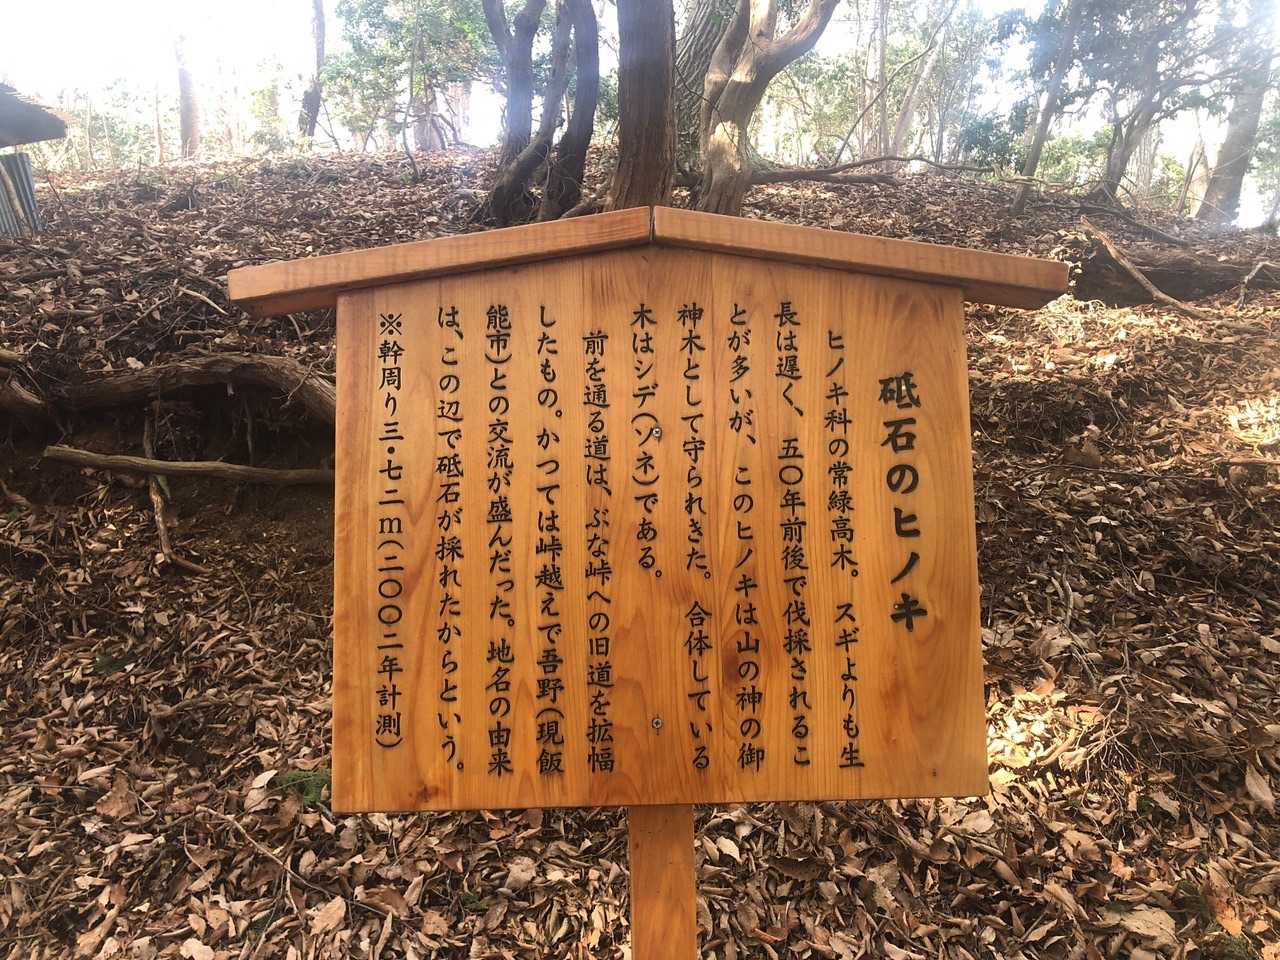 砥石のヒノキ
ヒノキ科の常緑高木。スギよりも生
長は遅く、五〇年前後で伐採されるこ
とが多いが、このヒノキは山の神の御
神木として守られきた。合体している
木はシデ(ソネ)である。
前を通る道は、ぶな峠への旧道を拡幅
したもの。かつては峠越えで吾野(現飯
能市)との交流が盛んだった。地名の由来
は、この辺で砥石が採れたからという。
※幹周り三・七二m(二〇〇二年計測)